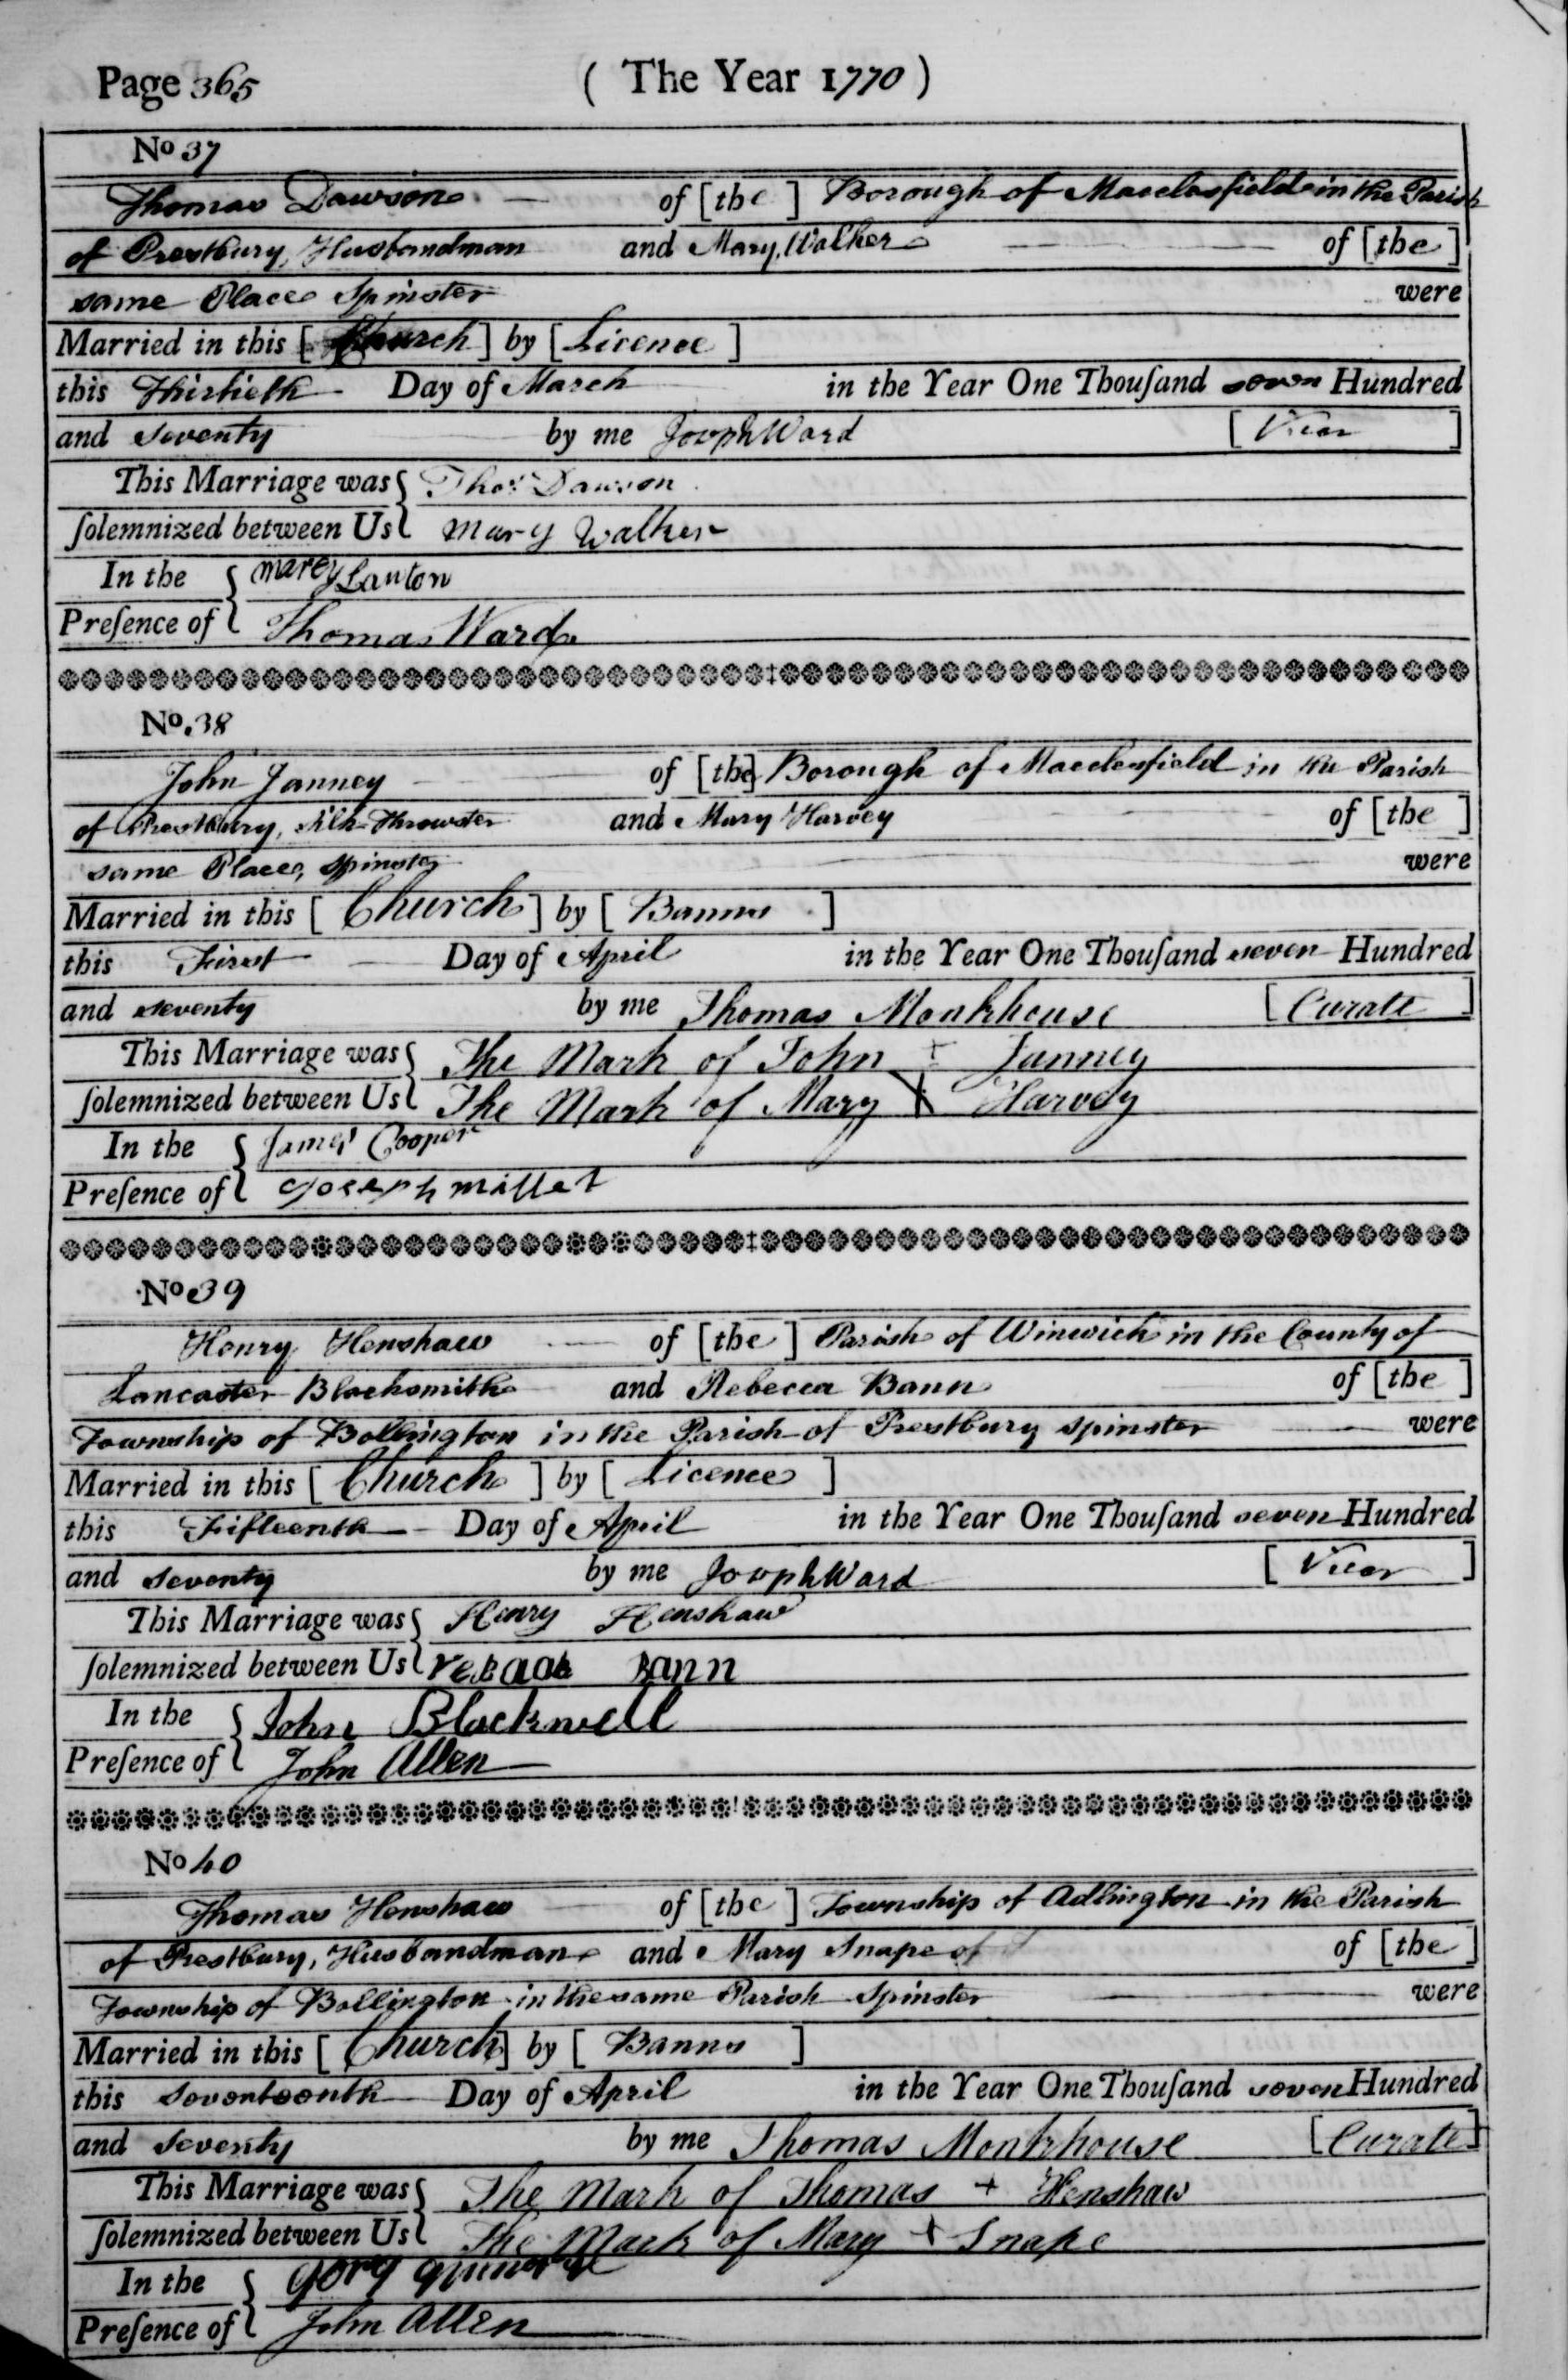 Page 365 ( The Year 1770 )
No 37
Thomas Dawson of [the ] Borough of Macclesfield in the Parish
of Prestbury, Husbandman and Mary Walker of [the ]
same Place Spinster were
Married in this [ Church ] by [ Licence ]
this Thirtieth Day of March in the Year One Thouſand seven Hundred
and seventy by me Joseph Ward [ Vicar ]
This Marriage was { Thos Dawson
ſolemnized between Us { mary walker
In the { marey Lanton
Preſence of { Thomas Ward
No. 38
John Janney of [the] Borough of Macclesfield in the Parish
of Prestbury, Silk Throwster and Mary Harvey of [the ]
same Place, Spinster were
Married in this [ Church ] by [ Banns ]
this First Day of April in the Year One Thouſand seven Hundred
and seventy by me Thomas Monkhouse [ Curate ]
This Marriage was { The Mark of John + Janney
ſolemnized between Us { The Mark of Mary X Harvey
In the { James Cooper
Preſence of { Joseph millet
No 39
Henry Henshaw of [the ] Parish of Winwick in the County of
Lancaster Blacksmith and Rebecca Bann of [the ]
Township of Bollington in the Parish of Prestbury spinster were
Married in this [ Church ] by [ Licence ]
this Fifteenth Day of April in the Year One Thouſand seven Hundred
and seventy by me Joseph Ward [ Vicar ]
This Marriage was { Henry Henshaw
ſolemnized between Us { Bann
In the { John Blackwell
Preſence of { John Allen
No 40
Thomas Henshaw of [the ] Township of Adlington in the Parish
of Prestbury, Husbandman and Mary Snape of of [the ]
Township of Bollington in the same Parish Spinster were
Married in this [ Church ] by [ Banns ]
this Seventeenth Day of April in the Year One Thouſand seven Hundred
and Seventy by me Thomas Monkhouse [ Curate ]
This Marriage was { The Mark of Thomas + Henshaw
ſolemnized between Us { The Mark of Mary + Snape
In the { gorg
Preſence of { John Allen